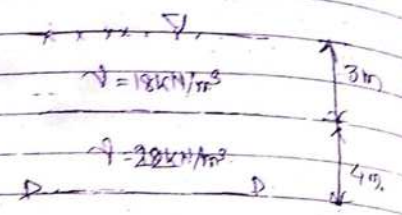 γ = 18 KN/m³
3m
γ = 20 KN/m³
4m.
D D